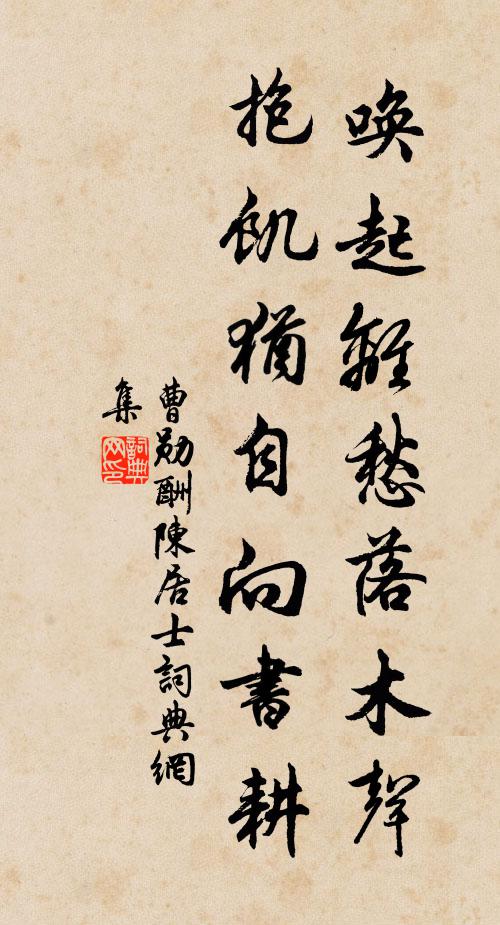 喚起離愁落木聲
抱飢猶自向書耕
曹勛酬陳居士詞典網
集
詞典網印